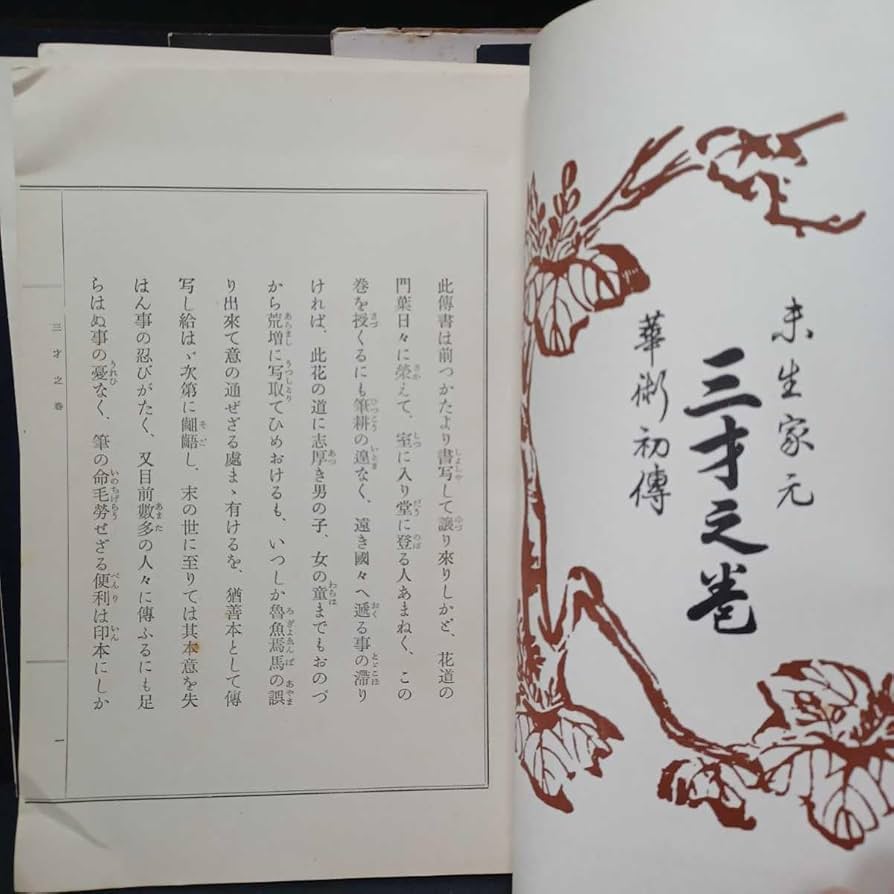 未生家元
三才之巻
華術初傳
此傳書は前つかたより書写して譲り來りしかど、花道の
門葉日々に榮えて、室に入り堂に登る人あまねく、この
巻を授くるにも筆耕の遑なく、遠き國々へ遞る事の滯り
ければ、此花の道に志厚き男の子、女の童までもおのづ
から荒増に写取てひめおけるも、いつしか魯魚焉馬の誤
り出來て意の通ぜざる處まゝ有けるを、猶善本として傳
写し給はゞ次第に齟齬し、末の世に至りては其本意を失
はん事の忍びがたく、又目前數多の人々に傳ふるにも足
らはぬ事の憂なく、筆の命毛勞せざる便利は印本にしか
三才之巻
一